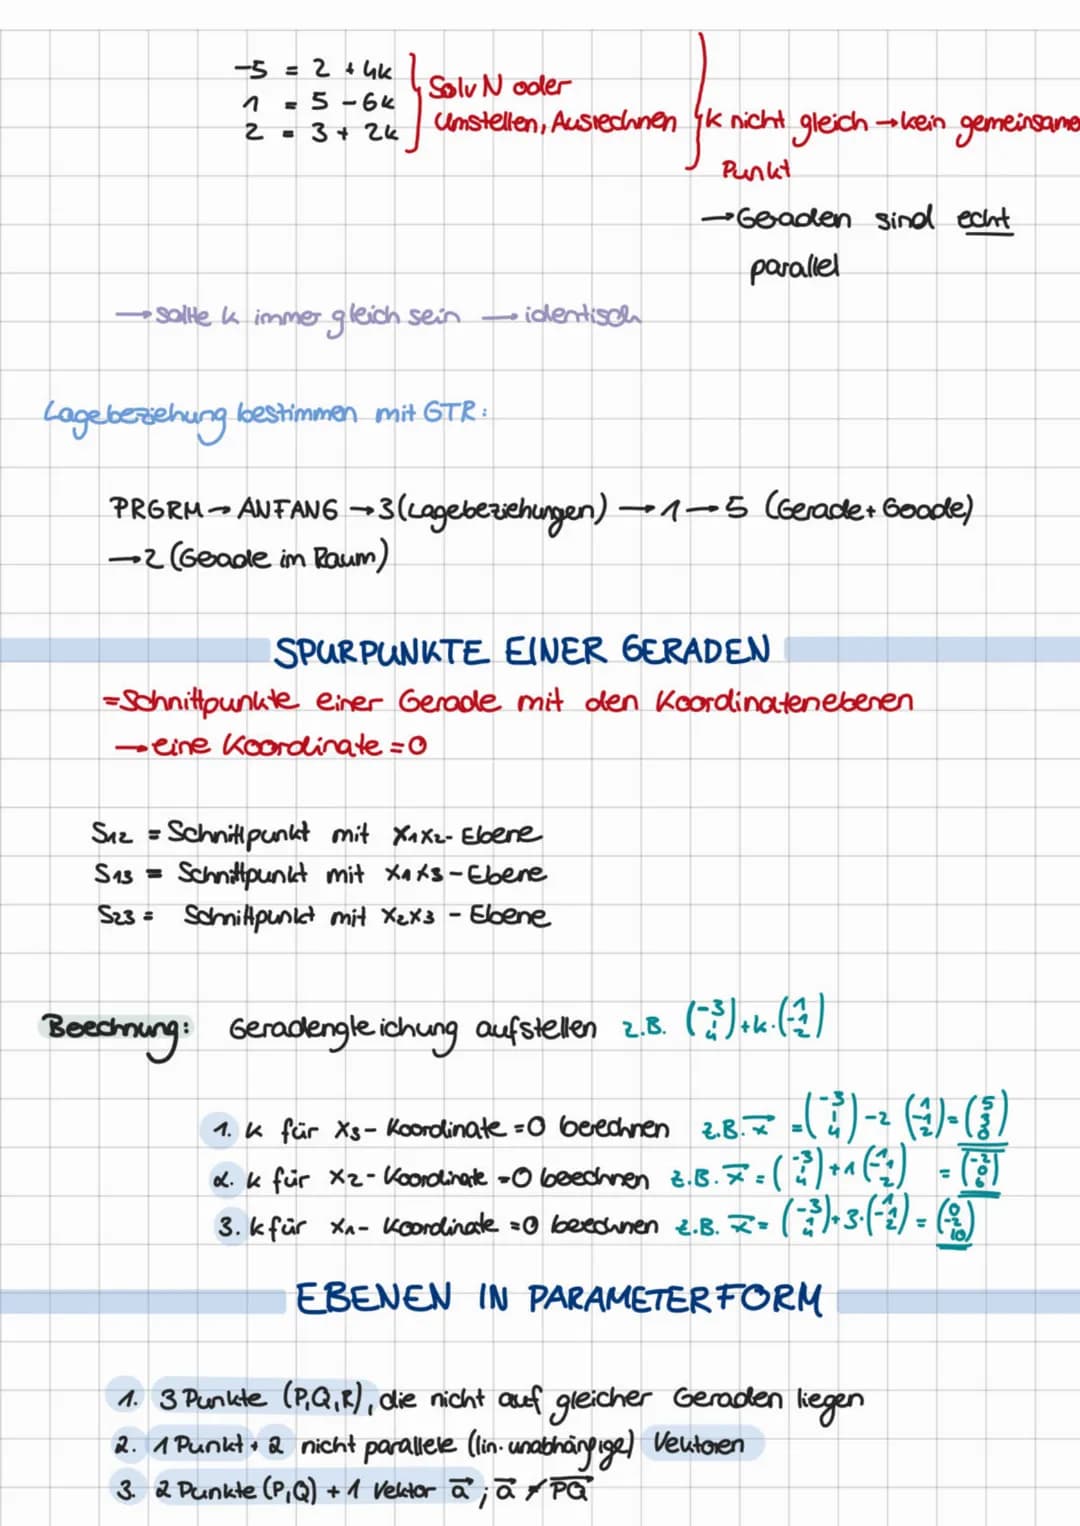 -5 = 2 + 4k
1 = 5 - 6k
2 = 3 + 2k
SolvN oder
Umstellen, Ausrechnen
k nicht gleich → kein gemeinsame
Punkt
→ Geraden sind echt
parallel
→ sollte k immer gleich sein → identisch
Lagebeziehung bestimmen mit GTR:
PRGRM → ANFANG → 3 (Lagebeziehungen) → 1 → 5 (Gerade + Gerade)
→ 2 (Gerade im Raum)
SPURPUNKTE EINER GERADEN
= Schnittpunkte einer Gerade mit den Koordinatenebenen
→ eine Koordinate = 0
S12 = Schnittpunkt mit x1x2 - Ebene
S13 = Schnittpunkt mit x1x3 - Ebene
S23 = Schnittpunkt mit x2x3 - Ebene
Berechnung: Geradengleichung aufstellen z.B. (-3 1 4) + k · (1 -1 2)
1. k für x3 - Koordinate = 0 berechnen z.B. x⃗ = (-3 1 4) - 2 (1 -1 2) = (5 3 0)
2. k für x2 - Koordinate = 0 berechnen z.B. x⃗ = (-3 1 4) + 1 (1 -1 2) = (-2 0 6)
3. k für x1 - Koordinate = 0 berechnen z.B. x⃗ = (-3 1 4) + 3 · (1 -1 2) = (0 -2 10)
EBENEN IN PARAMETERFORM
1. 3 Punkte (P,Q,R), die nicht auf gleicher Geraden liegen
2. 1 Punkt + 2 nicht parallele (lin. unabhängige) Vektoren
3. 2 Punkte (P,Q) + 1 Vektor a⃗ ; a⃗ ≠ PQ⃗